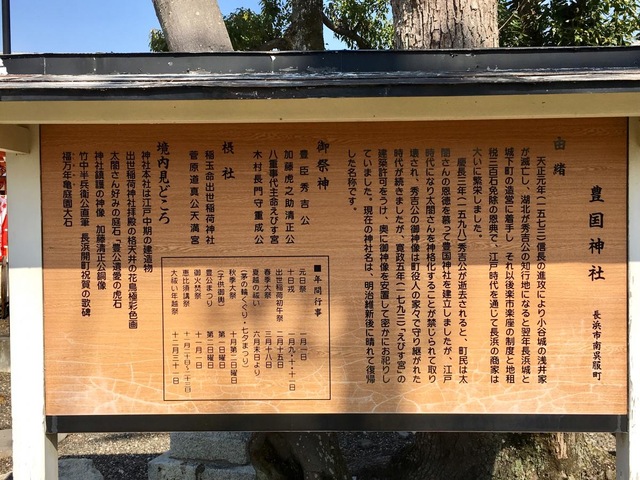 豊国神社
長浜市南呉服町
由緒
天正元年(一五七三)信長の進攻により小谷城の浅井家
が滅亡し、湖北が秀吉公の知行地になると翌年長浜城と
城下町の造営に着手し、それ以後楽市楽座の制度と地租
税三百石免除の恩典で、江戸時代を通じて長浜の商家は
大いに繁栄しました。
慶長三年(一五九八)秀吉公が逝去されると、町民は太
閤さんの恩徳を慕って豊国神社を建立しましたが、江戸
時代になり太閤さんを神格化することが禁じられて取り
壊され、秀吉公の御神像は町役人の家々で守り継がれた
時代が続きましたが、寛政五年(一七九三)、えびす宮の
建築許可をうけ、奥に御神像を安置して密かにお祀りし
ていました。現在の神社名は、明治維新後に晴れて復帰
した名称です。
御祭神
豊臣秀吉公
加藤虎之助清正公
八重事代主命えびす宮
木村長門守重成公
摂社
稲玉命出世稲荷神社
菅原道真公天満宮
境内見どころ
神社本社は江戸中期の建造物
出世稲荷神社拝殿の格天井の花鳥極彩色画
太閤さん好みの庭石「豊公遺愛の虎石
神社鎮護の神像 加藤清正公銅像
竹中半兵衛公直筆 長浜開町祝賀の歌碑
福万年亀庭園大石
■年間行事
元旦祭 一月一日
十日戎 一月九・十・十一日
出世稲荷初午祭 二月十五日
春季大祭 三月十八日
夏越の祓い 六月末日より
(茅の輪くぐり・七夕まつり)
秋季大祭 十月第二日曜日
(子供御輿) 第一日曜日
豊公まつり 第二日曜日
御火焚祭 十一月一日
恵比須講祭 十一月二十日・二十三日
大祓い年越祭 十二月三十一日